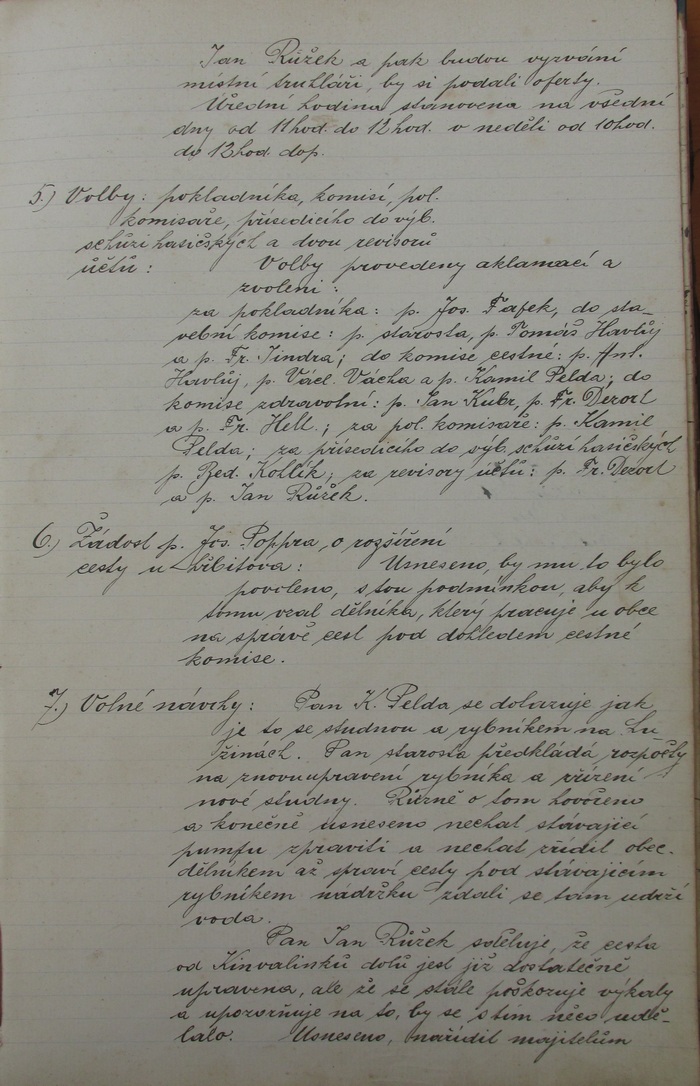 Jan Růžek a pak budou vyzváni
místní truhláři, by si podali oferty.
Úřední hodina stanovena na všední
dny od 11 hod. do 12 hod. v neděli od 10 hod.
do 12 hod. dop.
5.) Volby: pokladníka, komisí, pol.
komisaře, přísedícího do výb.
schůzí hasičských a dvou revisorů
účtů: Volby provedeny aklamací a
zvoleni:
za pokladníka: p. Jos. Fafek, do sta-
vební komise: p. starosta, p. Tomáš Havlůj
a p. Fr. Jindra; do komise cestné: p. Ant.
Havlůj, p. Václ. Vácha a p. Kamil Pelda; do
komise zdravotní: p. Jan Kubr, p. Fr. Derorl
a p. Fr. Hell.; za pol. komisaře: p. Kamil
Pelda; za přísedícího do výb. schůzí hasičských
p. Bed. Kohlík; za revisory účtů: p. Fr. Derorl
a p. Jan Růžek.
6.) Žádost p. Jos. Poppra, o rozšíření
cesty u hřbitova: Usneseno, by mu to bylo
povoleno, s tou podmínkou, aby k
tomu vzal dělníka, který pracuje u obce
na správě cest pod dohledem cestné
komise.
7.) Volné návrhy: Pan K. Pelda se dotazuje jak
je to se studnou a rybníkem na Lu-
žinách. Pan starosta předkládá rozpočty
na znovuupravení rybníka a zřízení
nové studny. Různě o tom hovořeno
a konečně usneseno nechat stávající
pumpu zpraviti a nechat zřídit obec.
dělníkem až spraví cesty pod stávajícím
rybníkem nádržku zdali se tam udrží
voda.
Pan Jan Růžek sděluje, že cesta
od Kinvalinků dolů jest již dostatečně
upravena, ale že se stále poškozuje výkaly
a upozorňuje na to, by se s tím něco udě-
lalo. Usneseno, nařídit majitelům